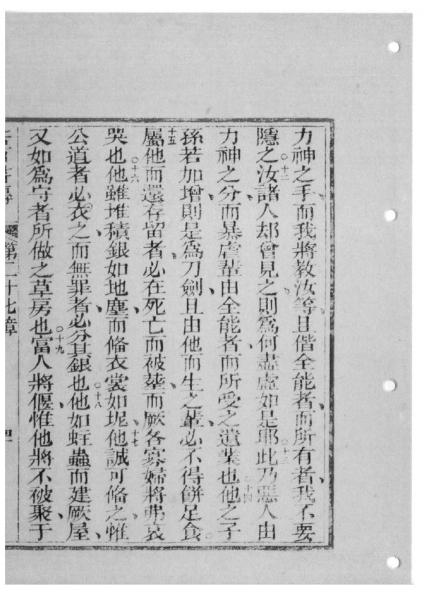 力神之手而我將敎汝等且偕全能者而所有者我不要
隱之○十二汝諸人却曾見之則爲何盡虛如是耶○十三此乃惡人由
力神之分而暴虐輩由全能者而所受之遺業也○十四他之子
孫若加增則是爲刀劍且由他而生之輩必不得餅足食
○十五屬他而還存留者必在死亡而被葬而厥各寡婦將弗哀
哭也○十六他雖堆積銀如地塵而俻衣裳如坭○十七他誠可俻之惟
公道者必衣之而無罪者必分其銀也○十八他如蛀蟲而建厥屋
又如爲守者所做之草房也○十九富人將偃惟他將不被聚于
第二十七章 四